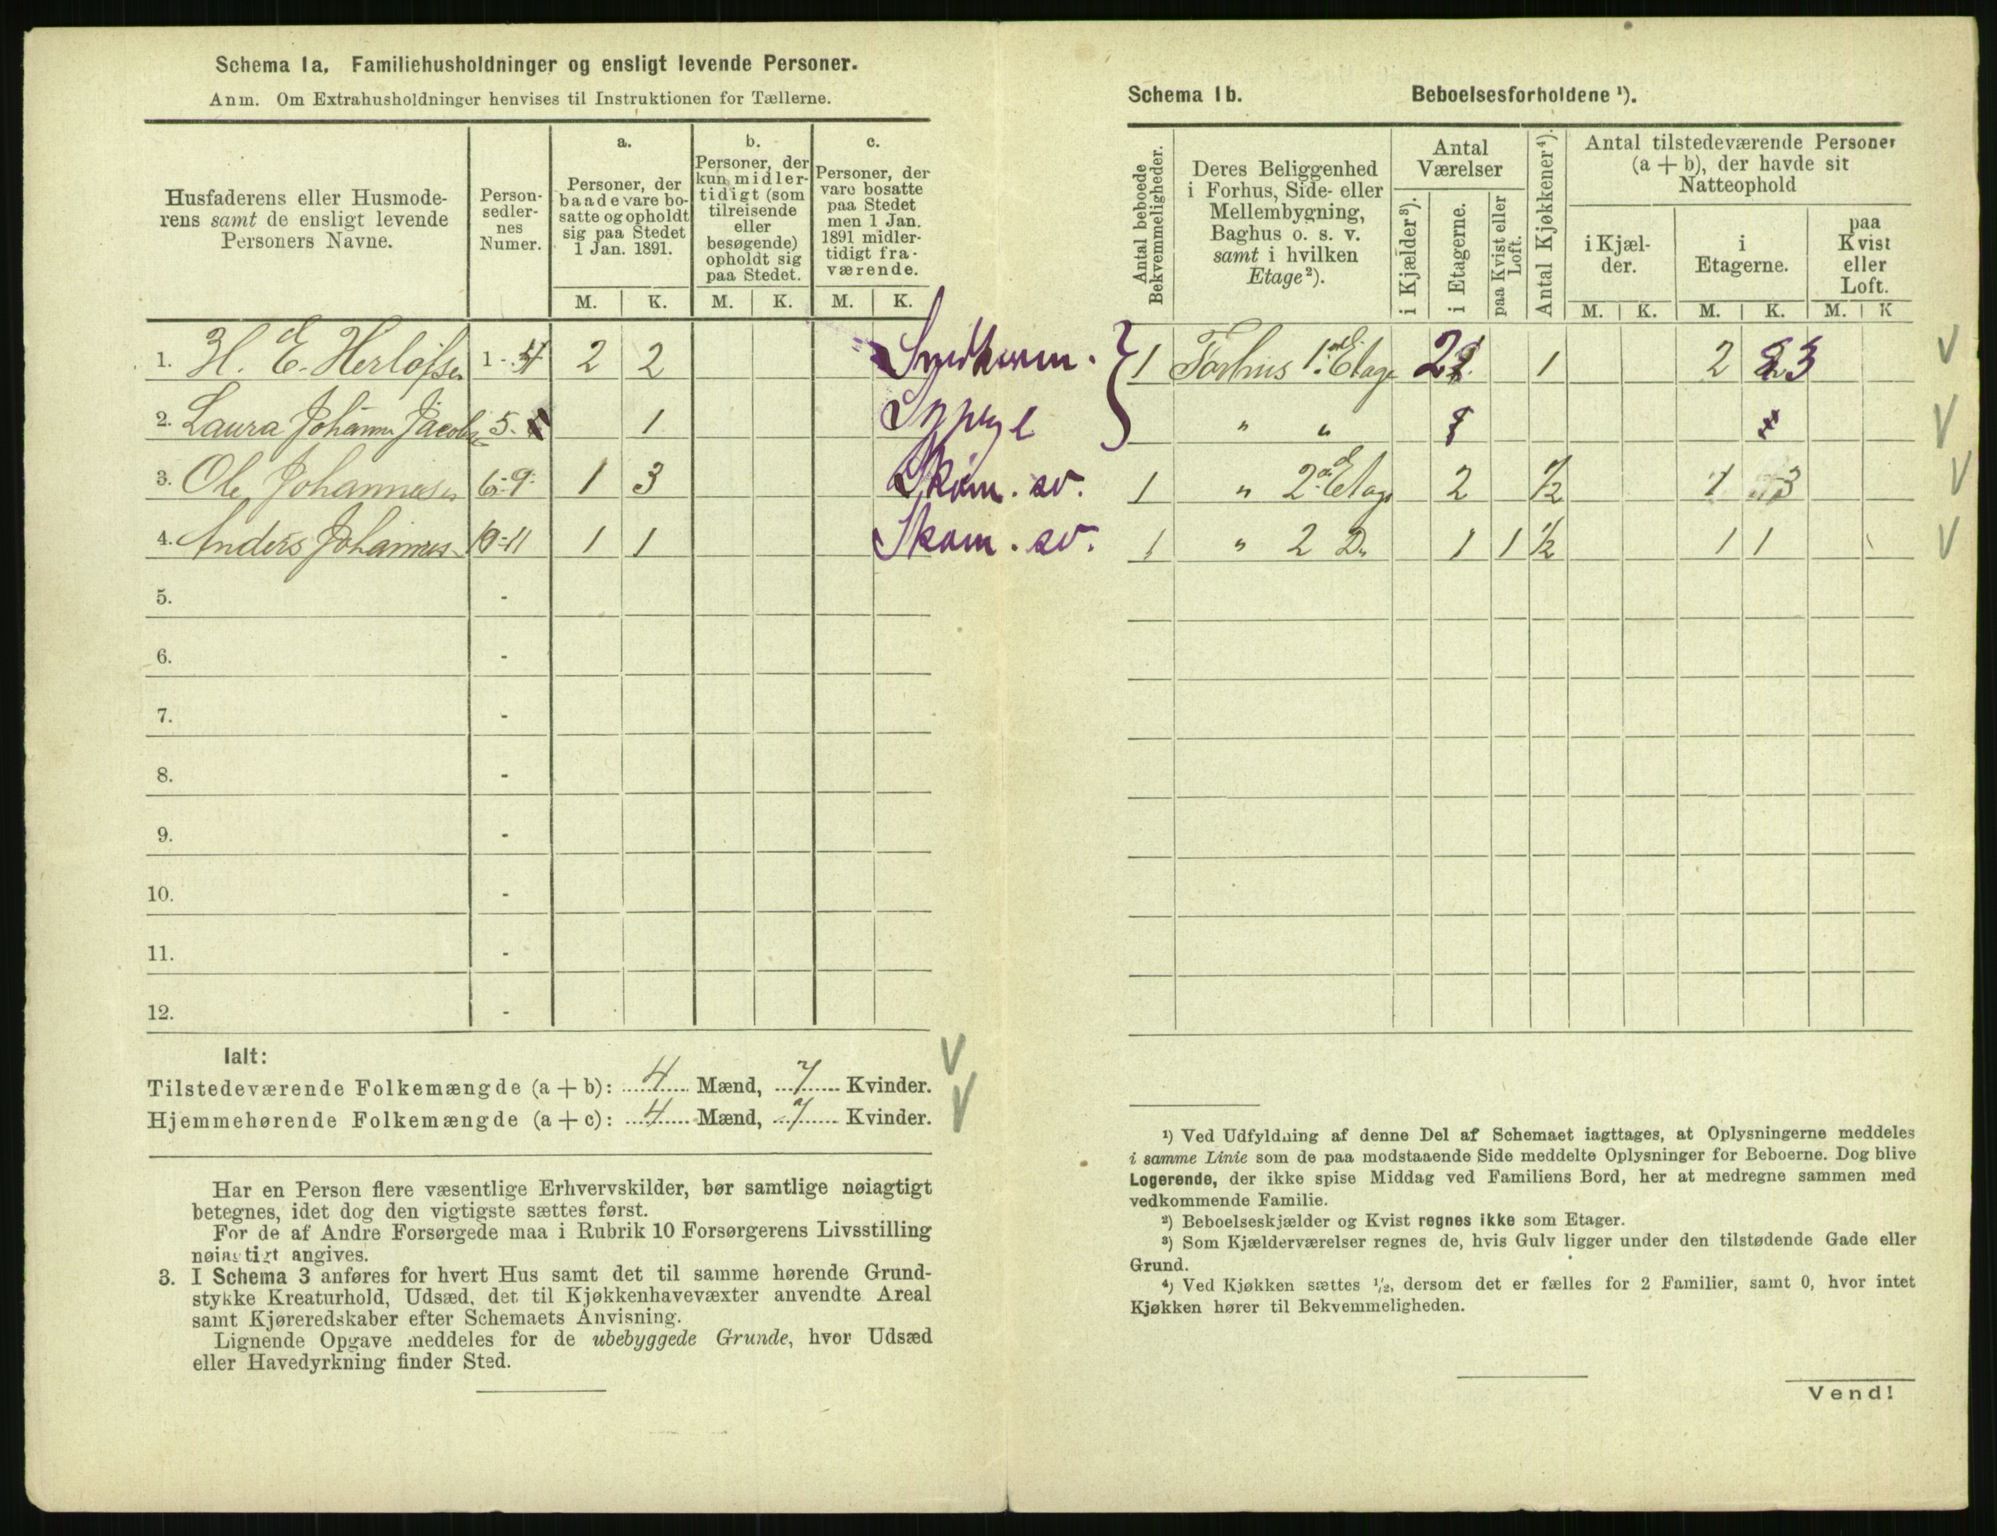 Schema 1a. Familiehusholdninger og ensligt levende Personer.
Anm. Om Extrahusholdninger henvises til Instruktionen for Tællerne.
Husfaderens eller Husmode-
rens samt de ensligt levende
Personers Navne.
Person-
sedler-
nes
Numer.
a.
Personer, der
baade vare bo-
satte og opholdt
sig paa Stedet
1 Jan. 1891.
b.
Personer, der
kun midler-
tidigt (som
tilreisende
eller
besøgende)
opholdt sig
paa Stedet.
c.
Personer, der
vare bosatte
paa Stedet
men 1 Jan.
1891 midler-
tidigt fra-
værende.
M. K. M. K. M. K.
1. H. E. Herlofsen 1-4 2 2
2. Laura Johanne Jacobs 5- 1
3. Ole Johannesen 6-9 1 3 Skom. sv.
4. Anders Johannes 10-11 1 1 Skom. sv.
5. -
6. -
7. -
8. -
9. -
10. -
11. -
12. -
Ialt:
Tilstedeværende Folkemængde (a + b): 4 Mænd, 7 Kvinder.
Hjemmehørende Folkemængde (a + c): 4 Mænd, 7 Kvinder.
Har en Person flere væsentlige Erhvervskilder, bør samtlige nøiagtigt
betegnes, idet dog den vigtigste sættes først.
For de af Andre Forsørgede maa i Rubrik 10 Forsørgerens Livsstilling
nøiagtigt angives.
3. I Schema 3 anføres for hvert Hus samt det til samme hørende Grund-
stykke Kreaturhold, Udsæd, det til Kjøkkenhavevæxter anvendte Areal
samt Kjøreredskaber efter Schemaets Anvisning.
Lignende Opgave meddeles for de ubebyggede Grunde, hvor Udsæd
eller Havedyrkning finder Sted.
Schema 1b. Beboelsesforholdene ¹).
Antal beboede
Bekvemmeligheder.
Deres Beliggenhed
i Forhus, Side- eller
Mellembygning,
Baghus o. s. v.
samt i hvilken
Etage²).
Antal
Værelser
i Kjælder³).
i Etagerne.
paa Kvist eller
Loft.
Antal Kjøkkener⁴).
Antal tilstedeværende Personer
(a + b), der havde sit
Natteophold
i Kjæl-
der.
i
Etagerne.
paa
Kvist
eller
Loft.
M. K. M. K. M. K
1 Forhus 1ste Etage 2 1 2 3
" "
1 " 2den Etage 2 1/2 1 3
1 " 2 Do 1 1 1/2 1 1
¹) Ved Udfyldning af denne Del af Schemaet iagttages, at Oplysningerne meddeles
i samme Linie som de paa modstaaende Side meddelte Oplysninger for Beboerne. Dog blive
Logerende, der ikke spise Middag ved Familiens Bord, her at medregne sammen med
vedkommende Familie.
²) Beboelseskjælder og Kvist regnes ikke som Etager.
³) Som Kjælderværelser regnes de, hvis Gulv ligger under den tilstødende Gade eller
Grund.
⁴) Ved Kjøkken sættes 1/2, dersom det er fælles for 2 Familier, samt 0, hvor intet
Kjøkken hører til Bekvemmeligheden.
Vend!